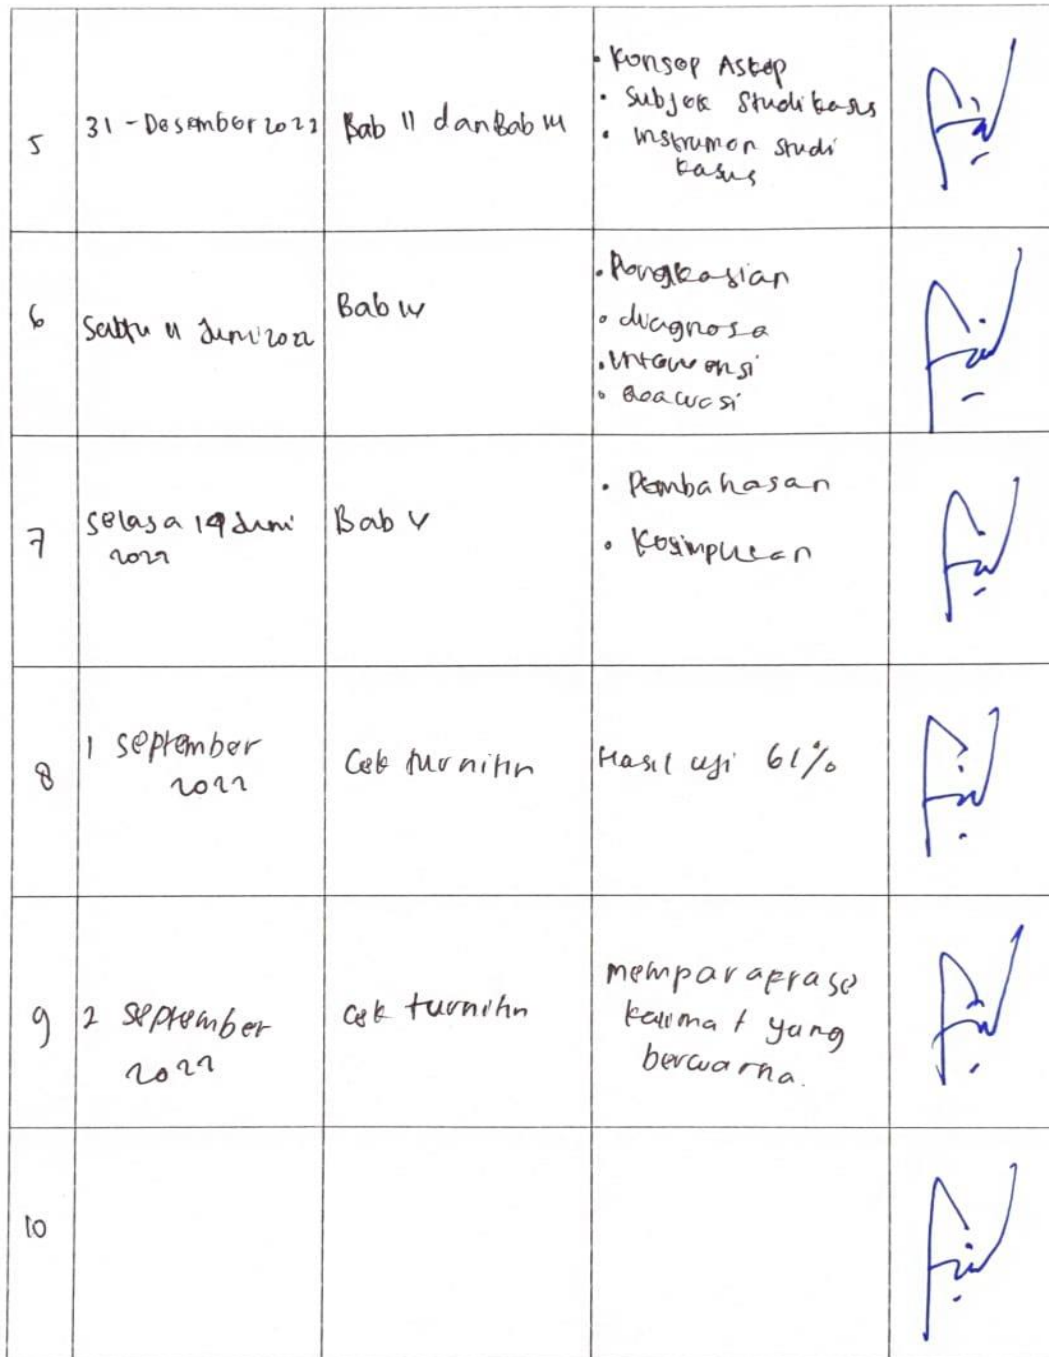 5
31 - Desember 2022
Bab II dan Bab III
• Konsep Askep
• Subjek Studi kasus
• instrumen studi
kasus
6
Sabtu 11 Juni 2022
Bab IV
• Pengkajian
• diagnosa
• intervensi
7
Selasa 14 Juni
2022
Bab V
• Pembahasan
• Kesimpulan
8
1 September
2022
Cek turnitin
Hasil uji 61%
9
2 September
2022
cek turnitin
memparafrase
kalimat yang
berwarna.
10